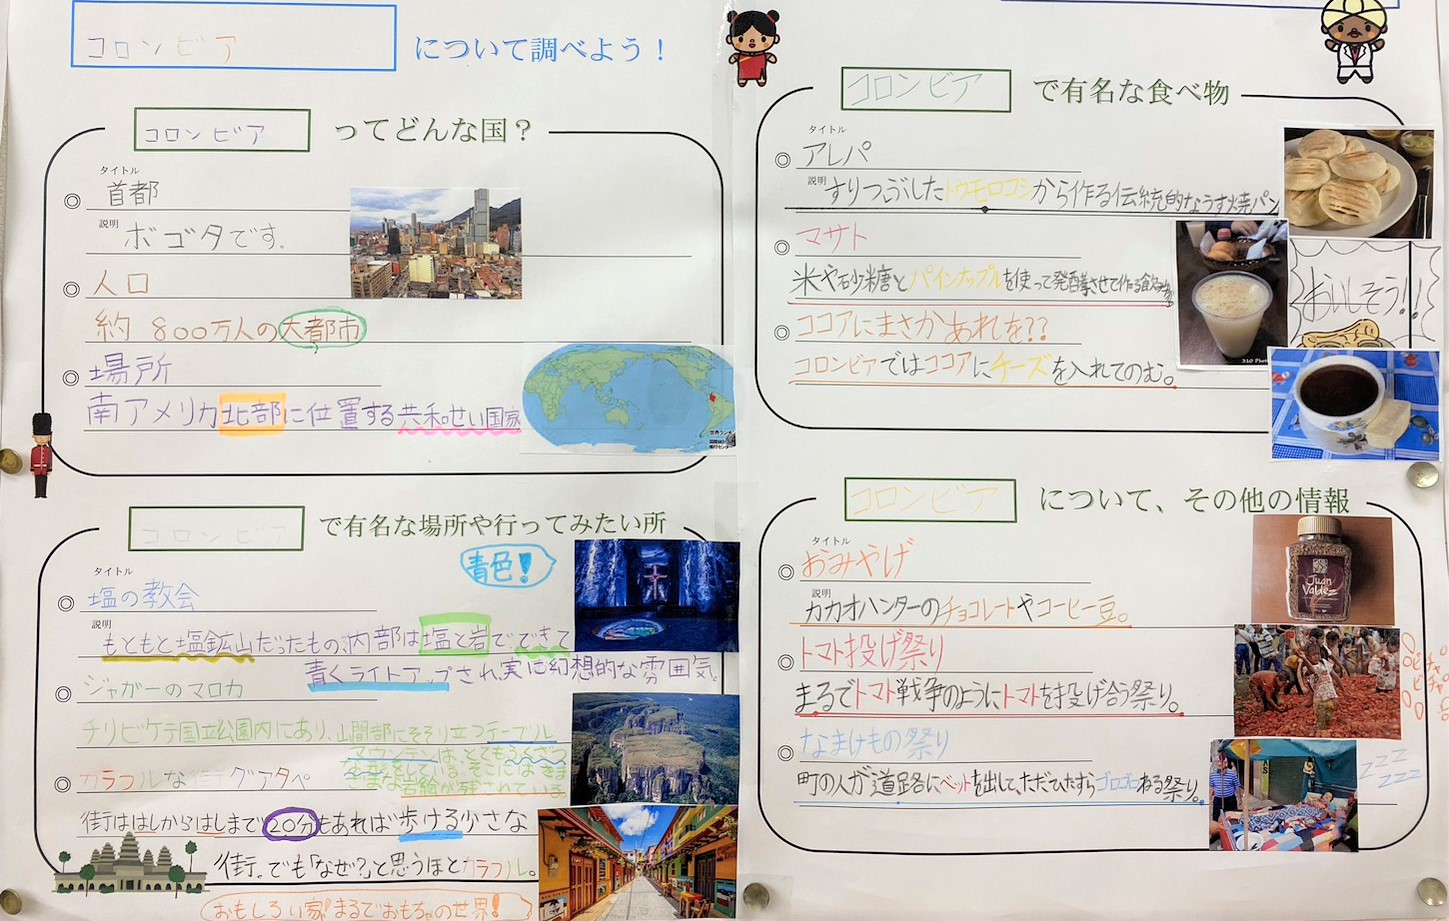 コロンビア について調べよう！
コロンビア ってどんな国？
タイトル
◎ 首都
説明
ボゴタです。
◎ 人口
約 800万人の大都市
◎ 場所
南アメリカ北部に位置する共和せい国家
コロンビア で有名な場所や行ってみたい所
青色！
タイトル
◎ 塩の教会
説明
もともと塩鉱山だったもの、内部は塩と岩でできて
青くライトアップされ、実に幻想的な雰囲気。
◎ ジャガーのマロカ
チリビケテ国立公園内にあり、山間部にそそり立つテーブル
マウンテンは、とてもうつくさつ
な形をしている。そこにはさま
ざまな石絵が残されている
◎ カラフルな街グアタペ
街ははしからはしまで20分もあれば歩ける少さな
街。でも「なぜ?」と思うほどカラフル。
おもしろい家!まるでおもちゃの世界!
コロンビア で有名な食べ物
タイトル
◎ アレパ
説明
すりつぶしたトウモロコシから作る伝統的なうす焼パン
◎ マサト
米や砂糖とパインナップルを使って発酵させて作る飲み物。
おいしそう!!
◎ ココアにまさかあれを??
コロンビアではココアにチーズを入れてのむ。
コロンビア について、その他の情報
タイトル
◎ おみやげ
説明
カカオハンターのチョコレートやコーヒー豆。
Juan
Valdez
◎ トマト投げ祭り
まるでトマト戦争のようにトマトを投げ合う祭り。
◎ なまけもの祭り
町の人が道路にベットを出して、ただひたすらゴロゴロねる祭り。
zzz
zzz